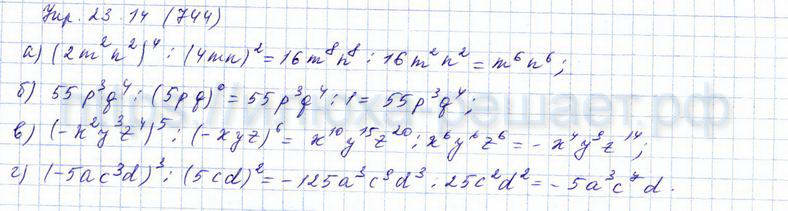 Упр. 23.14 (744)
а) (2m²n²)⁴ : (4mn)² = 16m⁸n⁸ : 16m²n² = m⁶n⁶;
б) 55p³q⁴ : (5pq)⁰ = 55p³q⁴ : 1 = 55p³q⁴;
в) (-x²y³z⁴)⁵ : (-xyz)⁶ = x¹⁰y¹⁵z²⁰ : x⁶y⁶z⁶ = -x⁴y⁹z¹⁴;
г) (-5ac³d)³ : (5cd)² = -125a³c⁹d³ : 25c²d² = -5a³c⁷d.